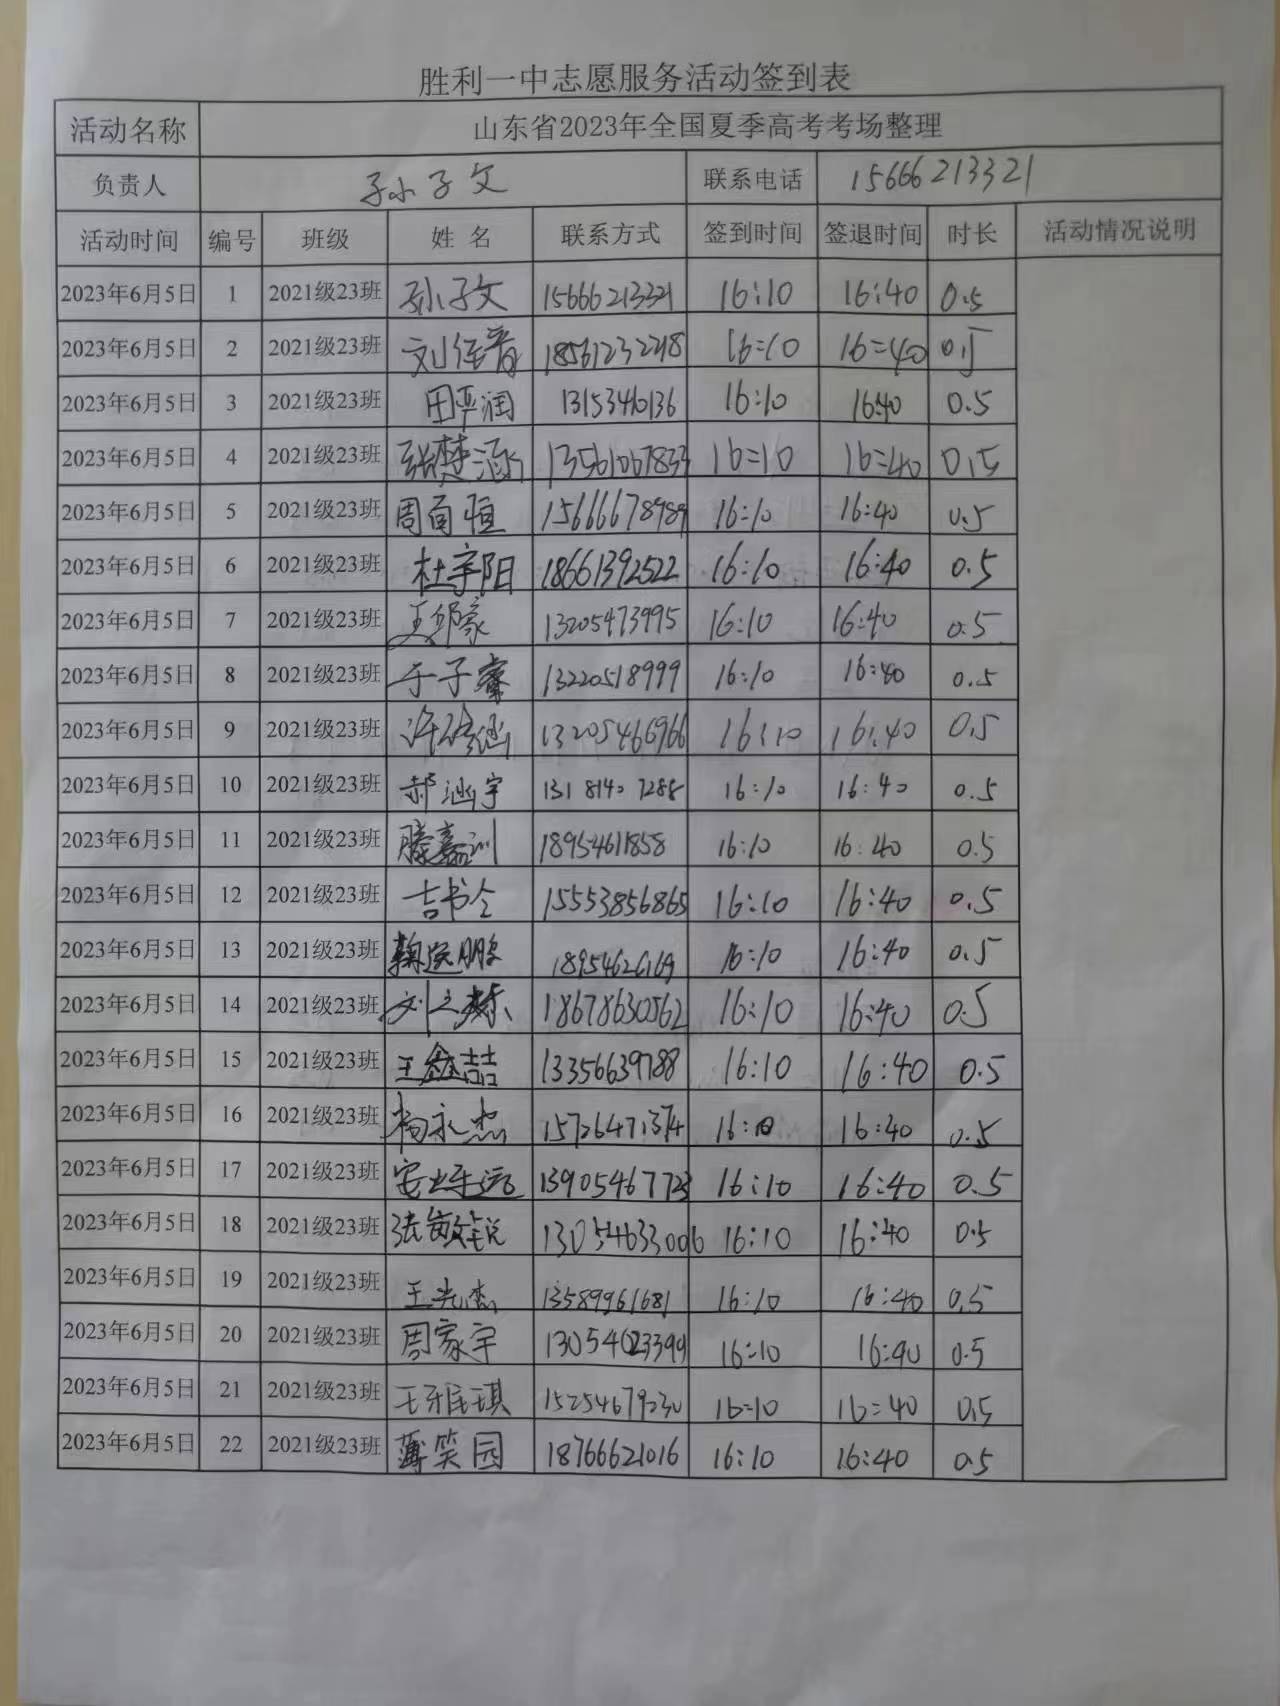 胜利一中志愿服务活动签到表
活动名称 山东省2023年全国夏季高考考场整理
负责人 孙子文 联系电话 15666213321
活动时间 编号 班级 姓 名 联系方式 签到时间 签退时间 时长 活动情况说明
2023年6月5日 1 2021级23班 孙子文 15666213321 16:10 16:40 0.5
2023年6月5日 2 2021级23班 16:10 16:40 0.5
2023年6月5日 3 2021级23班 16:10 16:40 0.5
2023年6月5日 4 2021级23班 张楚涵 13561067833 16:10 16:40 0.5
2023年6月5日 5 2021级23班 周百恒 15666678989 16:10 16:40 0.5
2023年6月5日 6 2021级23班 杜宇阳 18661392522 16:10 16:40 0.5
2023年6月5日 7 2021级23班 13205473995 16:10 16:40 0.5
2023年6月5日 8 2021级23班 于子睿 13220518999 16:10 16:40 0.5
2023年6月5日 9 2021级23班 13205466966 16:10 16:40 0.5
2023年6月5日 10 2021级23班 郝涵宇 13181407288 16:10 16:40 0.5
2023年6月5日 11 2021级23班 滕嘉训 18954611858 16:10 16:40 0.5
2023年6月5日 12 2021级23班 吉书仝 15553856865 16:10 16:40 0.5
2023年6月5日 13 2021级23班 16:10 16:40 0.5
2023年6月5日 14 2021级23班 18678630562 16:10 16:40 0.5
2023年6月5日 15 2021级23班 王鑫喆 13356639788 16:10 16:40 0.5
2023年6月5日 16 2021级23班 杨永杰 16:10 16:40 0.5
2023年6月5日 17 2021级23班 13905467723 16:10 16:40 0.5
2023年6月5日 18 2021级23班 13054633006 16:10 16:40 0.5
2023年6月5日 19 2021级23班 王光杰 13589961681 16:10 16:40 0.5
2023年6月5日 20 2021级23班 周家宇 16:10 16:40 0.5
2023年6月5日 21 2021级23班 王雅琪 15254679230 16:10 16:40 0.5
2023年6月5日 22 2021级23班 薄笑园 18766621016 16:10 16:40 0.5